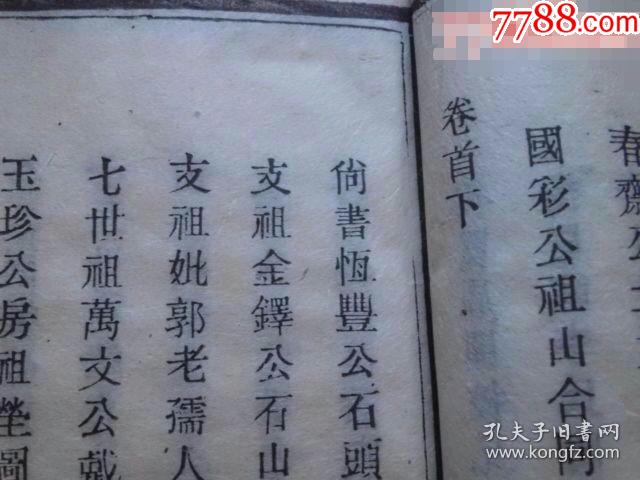 7788.com
春齋公
國彩公祖山合同
卷首下
尙書恆豐公石頭
支祖金鐸公石山
支祖妣郭老孺人
七世祖萬文公戴
玉珍公房祖塋圖
孔夫子旧书网
kongfz.com